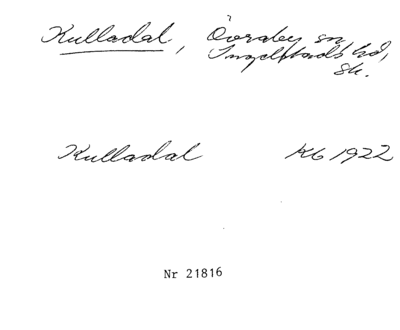 Kulladal, Övraby sn,
Ingelstads hd,
Sk.
Kulladal Kb 1922
Nr 21816